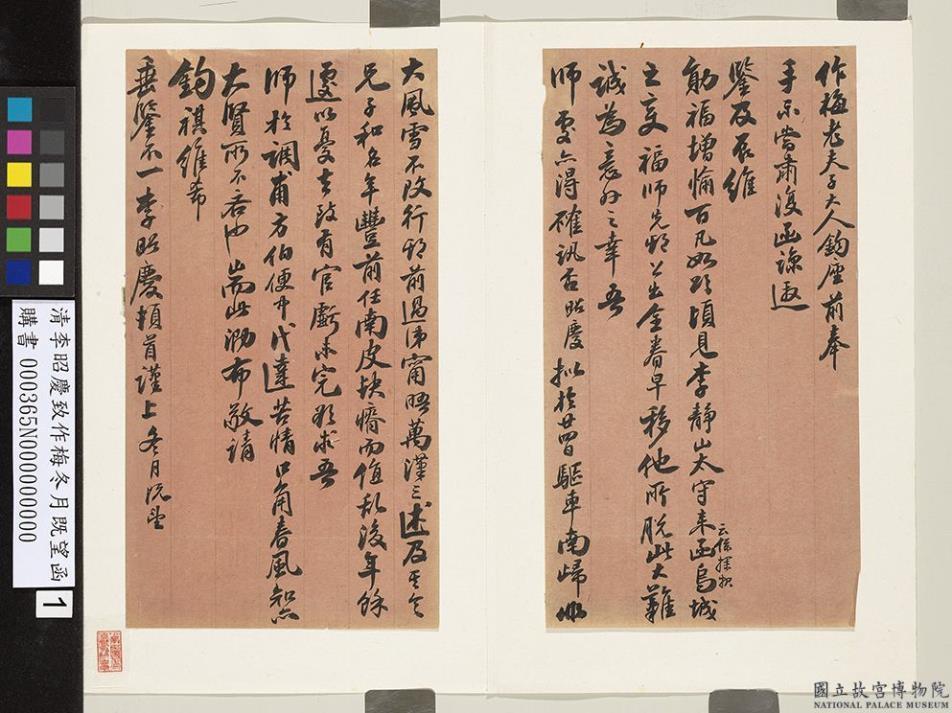 作梅老夫子大人鈞座前奉
手示當肅復函諒遞
鑒及辰維
勛福增愉百凡如頌頃見李靜山太守來函烏城
云係探報
之變福師先期公出全眷早移他所脫此大難
誠為意外之幸吾
師處亦得確訊否昭慶擬於廿四日驅車南歸倘
大風雪不改行期前過津甯晤萬漢三述及其令
兄子和名年豐前任南皮缺瘠而值亂後年餘
遽以憂去致有官虧未完欲求吾
師於調甫方伯便中代達苦情口角春風知亦
大賢所不吝也耑此泐布敬請
鈞祺維希
垂鑒不一李昭慶頓首謹上冬月既望
清李昭慶致作梅冬月既望函
購書 000365N000000000
1
國立故宮博物院
NATIONAL PALACE MUSEUM